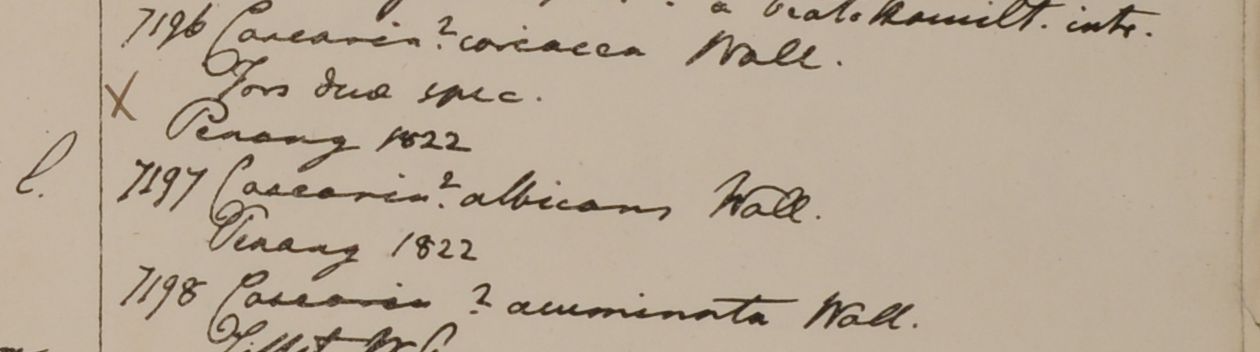 a beato Hamilt. intr.
7196 Casearia? coriacea Wall.
X Fors duæ spec.
Penang 1822
l. 7197 Casearia? albicans Wall.
Penang 1822
7198 Casearia ? acuminata Wall.